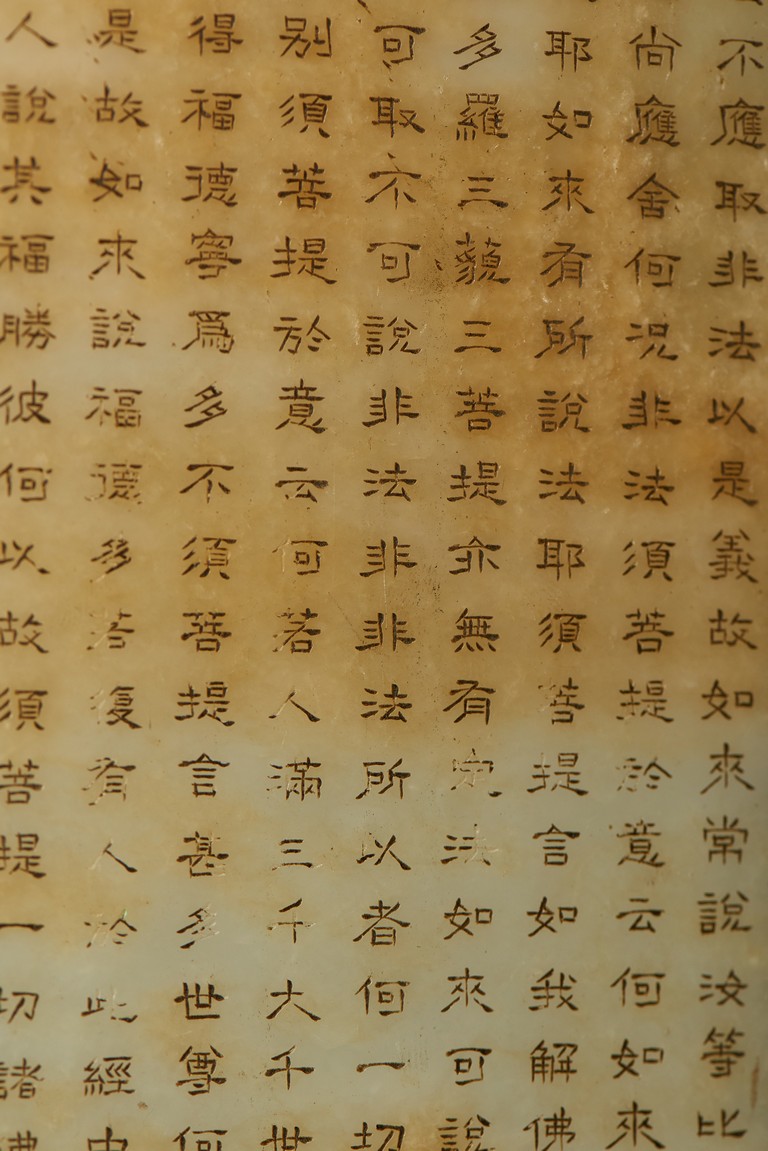 不應取非法以是義故如來常說汝等比
尚應舍何況非法須菩提於意云何如來
耶如來有所說法耶須菩提言如我解佛
多羅三藐三菩提亦無有定法如來可說
可取不可說非法非非法所以者何一切
别須菩提於意云何若人滿三千大千世
得福德寧爲多不須菩提言甚多世尊何
是故如來說福德多若復有人於此經中
人說其福勝彼何以故須菩提一切諸佛